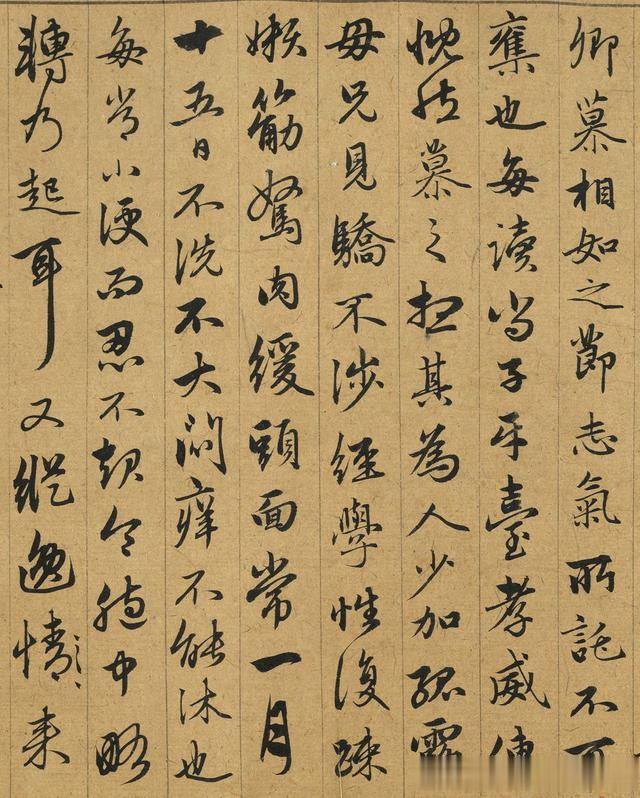 卿慕相如之節志氣所託不可
奪也每讀尚子平臺孝威傳
慨然慕之想其為人少加孤露
母兄見驕不涉經學性復疎
嬾筋駑肉緩頭面常一月
十五日不洗不大悶癢不能沐也
每常小便而忍不起令胞中略
轉乃起耳又縱逸情來